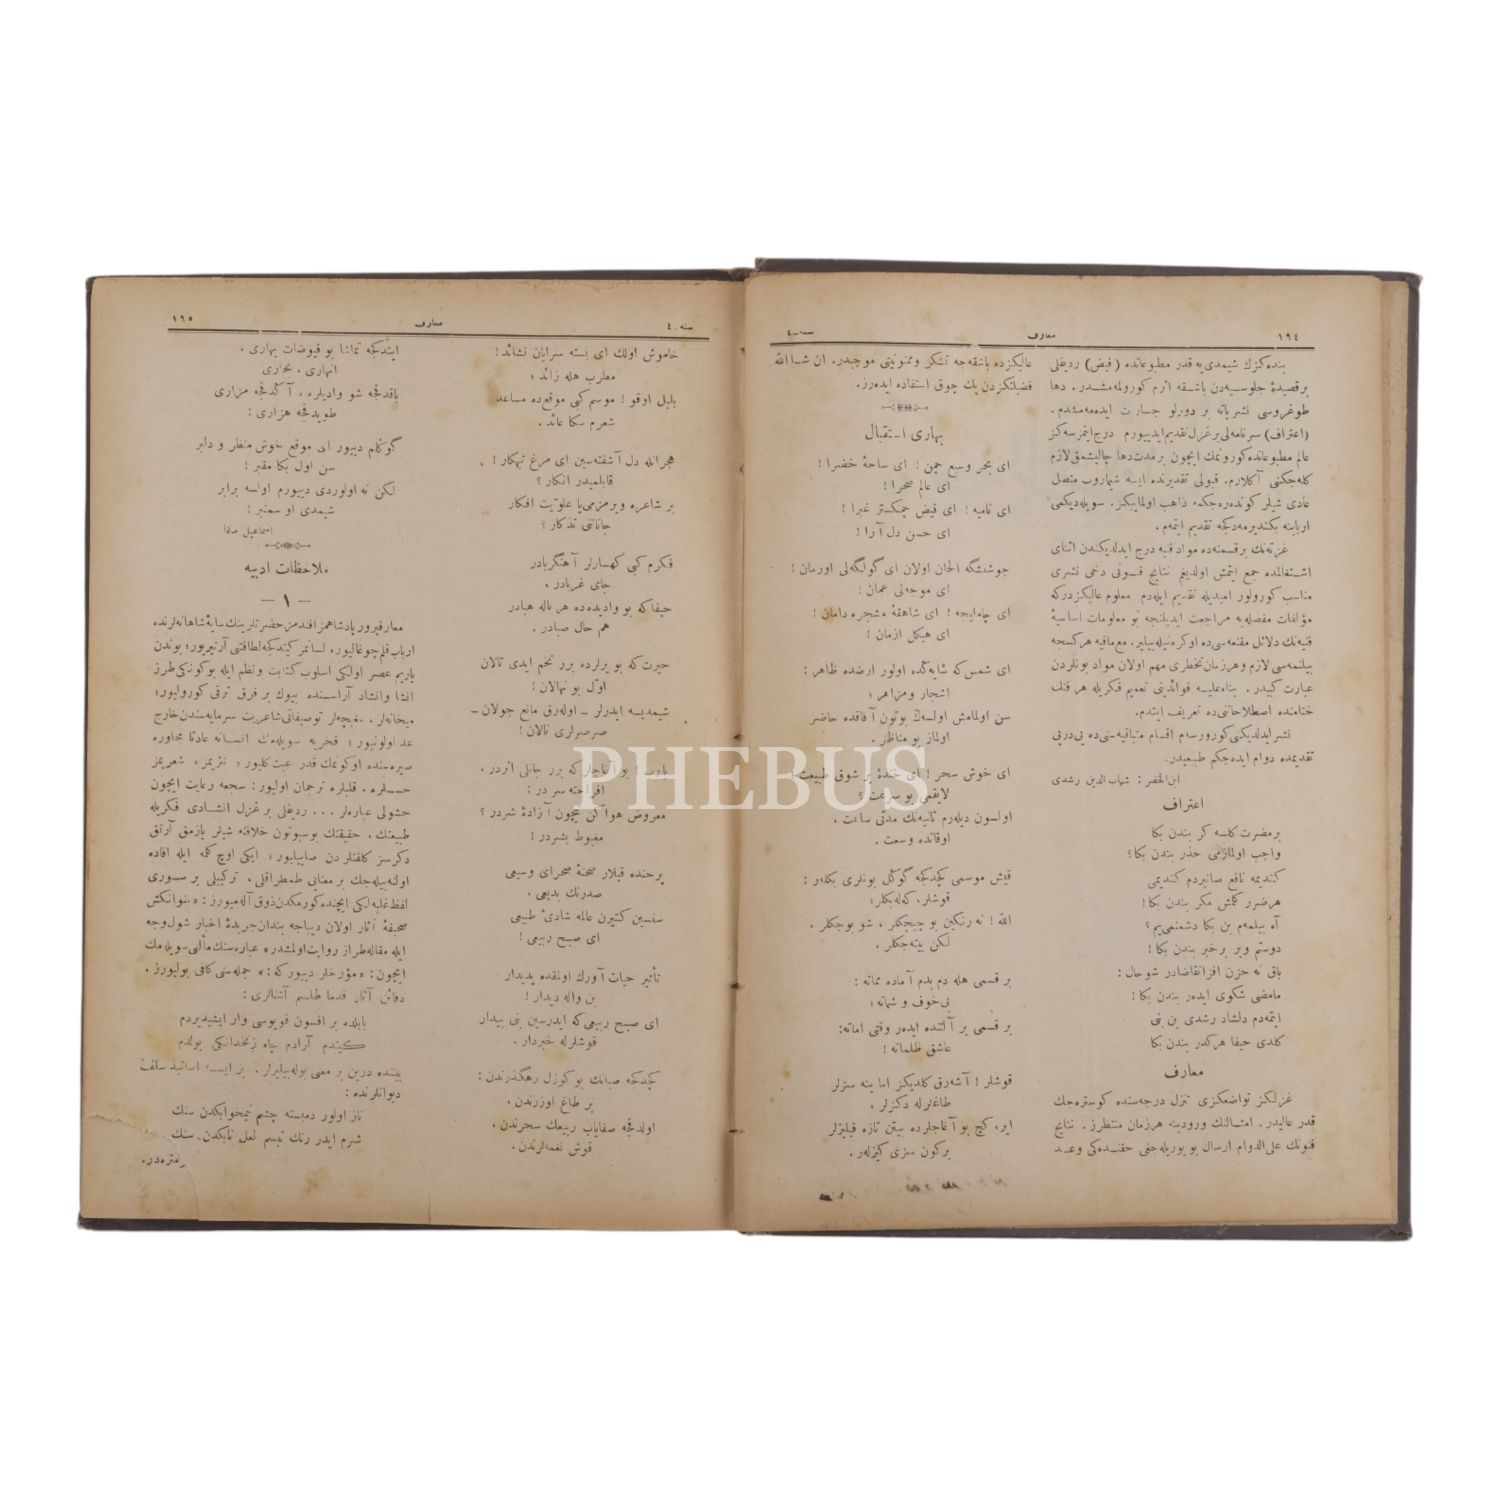 ١٩٤
معارف
سنه ـ ٤
بنده‌كزك شیمدی‌یه قدر مطبوعاتده (فیض) ردیفلی
برقصیدهٔ جلوسیه‌دن باشقه اثرم كورولمه‌مشدر. دها
طوغروسی نشریاته بر دورلو جسارت ایده‌مه‌مشدم.
(اعتراف) سرنامه‌لی برغزل تقدیم ایدییورم درج ایتمزسه‌كز
عالم مطبوعاتده كورونمك ایچون برمدت دها چالیشمق لازم
كله‌جكنی آكلارم. قبولی تقدیرنده ایسه شیماروب متصل
عادی شیلر كوندره‌جكمه ذاهب اولماییكز. سویله‌دیكمی
اربابنه بكندیرمه‌دكجه تقدیم ایتمم.
غزته‌نك برقسمنده مواد فنیه درج ایدلدیكندن اثنای
اشتغالمده جمع ایتمش اولدیغم نتایج فنونی دخی نشری
مناسب كورولور امیدیله تقدیم ایله‌دم. معلوم عالیكزدركه
مؤلفات مفصله‌یه مراجعت ایدیلنجه بو معلومات اساسیهٔ
فنیه‌نك دلائل مقنعه‌سی‌ده اوكره‌نیله‌بیلیر. مع‌مافیه هركسجه
بیلنمه‌سی لازم وهرزمان تخطری مهم اولان مواد بونلردن
عبارت كبیدر. بناءً علیه فوائدینی تعمیم فكریله هر فنك
ختامنده اصطلاحاتنی‌ده تعریف ایتدم.
نشر ایدلدیكنی كورورسه‌م اقسام متباقیه‌سنی‌ده پی‌درپی
تقدیمده دوام ایده‌جكم طبیعیدر.
ابن‌الخضر : شهاب‌الدین رشدی
اعتراف
برمضرت كلسه كر بندن بكا
واجب اولمازمی حذر بندن بكا؟
كندیمه نافع صانیردم كندیمی
هرضرر كلمش مكر بندن بكا!
آه بیلمه‌م بن بكا دشمنمی‌یم؟
دوستم ویر برخبر بندن بكا!
باق نه حزن افزا تقاضادر شو حال:
مامضی شكوی ایده‌ر بندن بكا!
ایتمه‌دم دلشاد رشدی بن بنی
كلدی حیفا هركدر بندن بكا
معارف
غزلكز تواضعكزی تنزل درجه‌سنده كوستره‌جك
قدر عالیدر. امثالنك ورودینه هرزمان منتظرز. نتایج
فنونك علی‌الدوام ارسال بویوریله‌جغی حقنده‌كی وعد
عالیكزده باشقه‌جه تشكر وممنونیتی موجبدر. ان شاءالله
فضیلتكزدن پك چوق استفاده ایده‌رز.
بهاری استقبال
ای بحر وسیع چمن! ای ساحهٔ خضرا!
ای عالم صحرا!
ای نامیه! ای فیض چمنكستر غبرا!
ای حسن دل آرا!
جوشدشكه الحان اولان ای كولكه‌لی اورمان!
ای موجه‌لی عمان!
ای چاملیجه! ای شاهقهٔ مشجره دامان!
ای هیكل ازمان!
ای شمس كه شایه‌كده اولور ارضده ظاهر:
اشجار ومزاهر؛
سن اولمامش اولسه‌ك بوتون آفاقده حاضر
اولماز بو مناظر.
ای خوش سحر! ای خندهٔ پر شوق طبیعت!
لایقمی بو سرعت؟
اولسون دیله‌رم ثانیه‌نك مدتی ساعت،
اوقاتده وسعت.
قیش موسمی كچدكجه كوكل بونلری بكلر:
قوشلر، كه‌له‌بكلر؛
الله! نه رنكین بو چیچكلر، شو بوجكلر.
لكن بیته‌جكلر.
بر قسمی هله دم بدم آماده مماته:
بی‌خوف و شماته؛
بر قسمی یر آلتنده ایده‌ر وقتی اماته:
عاشق ظلماته!
قوشلر! آشه‌رق كلدیكز اما ینه سزلر
طاغلرله دكزلر،
ایر، كچ بو آغاجلرده بیتن تازه فیلیزلر
بركون سزی كیزلر.
١٩٥
معارف
سنه ـ ٤
خاموش اولك ای بسته سرایان نشائد!
مطرب هله زائد؛
بلبل اوقو! موسم كبی موقع‌ده مساعد
شعرم سكا عائد.
هجرانله دل آشفته‌سین ای مرغ تبهكار!
قابلمیدر انكار؟
بر شاعره ویرمزمی‌یا علویت افكار
جانانی تذكار؟
فكرم كبی كهسارلر آهنگربادر
جای غربادر،
حیفاكه بو وادیده‌ده هر ناله هبادر
هم حال صبادر.
حیرت كه بو یرلرده برر تخم ایدی تالان
اول بو نهالان!
شیمدیسه ایدرلر ـ اوله‌رق مانع جولان ـ
صرصرلری نالان!
یارب! بو آغاجلر كه برر جانلی اثردر،
افراخته سر در:
معروض هواكن نیچون آزادهٔ شردر؟
مغبوط بشردر!
پرخنده قیلار صحنهٔ صحرای وسیعی
صدرنك بدیعی،
سنسین كتیرن عالمه شادیٔ طبیعی
ای صبح ربیعی!
تأثیر حیات آورك اولمقده پدیدار
بن واله دیدار!
ای صبح ربیعی‌كه ایدرسین بنی بیدار
قوشلرله خبردار.
كچدكجه صبانك بو كوزل رهگذرندن:
بر طاغ اوزرندن،
اولدقجه صفایاب ربیعك سحرندن،
قوش نغمه‌لرندن.
ایتدكجه تماشا بو فیوضات بهاری،
انهاری، بحاری
باقدقجه شو وادیلره، آكدقجه مزاری
طویدقجه هزاری:
كوكلم دییور ای موقع خوش منظر و دلبر
سن اول بكا مقبر!
لكن نه اولوردی دییورم اولسه برابر
شیمدی او سمنبر!
اسماعیل صفا
ملاحظات ادبیه
ـ ١ ـ
معارفپرور پادشاهمز افندمز حضرتلرینك سایهٔ شاهانه‌لرنده
ارباب قلم چوغالییور، لسانمز كیتدكجه لطافتنی آرتیریور؛ بوندن
یاریم عصر اولكی اسلوب كتابت ونظم ایله بوكونكی طرز
انشا وانشاد آراسنده بیوك بر فرق ترقی كورولیور؛
میخانه‌لر، مغبچه‌لر توصیفاتی شاعریت سرمایه‌سندن خارج
عد اولونیور؛ فخریه سویله‌مك انسانه عادتا محاوره
صیره‌سنده اوكونمك قدر عبث كلیور؛ نثریمز، شعریمز
حسلره، قلبلره ترجمان اولیور: سجعه رعایت ایچون
حشولی عباره‌لر ... ردیفلی بر غزل انشادی فكریله
طبیعتك، حقیقتك بوسبوتون خلافنه شیلر یازمق آرتق
دكرسز كلفتلردن صاییلیور؛ ایكی اوچ كلمه ایله افاده
اولنه‌بیله‌جك بر معنایی طمطراقلی، تركیبلی بر سوری
لفظ غلبه‌لكی ایچنده كورمكدن ذوق آله‌میورز: «عنوانكش
صحیفهٔ آثار اولان دیباجه بندان جریدهٔ اخبار شول وجه
ایله مقاله‌طراز روایت اولمشدر» عباره‌سنك مألی سویله‌مك
ایچون: «مؤرخلر دییوركه:» جمله‌سنی كافی بولیورز.
دقائق آثار قدما طلسم آشنالری:
بابلده بر افسون قویوسی وار ایشیدیردم
كیتدم آرادم چاه زنخدانكی بولدم
بیتنده درین بر معنی بوله‌بیلیرلر. بز ایسه اساتید سلف
دیوانلرنده:
ناز اولور دمبسته چشم نیمخوابكدن سنك
شرم ایدر رنك تبسم لعل نابكدن سنك
PHEBUS